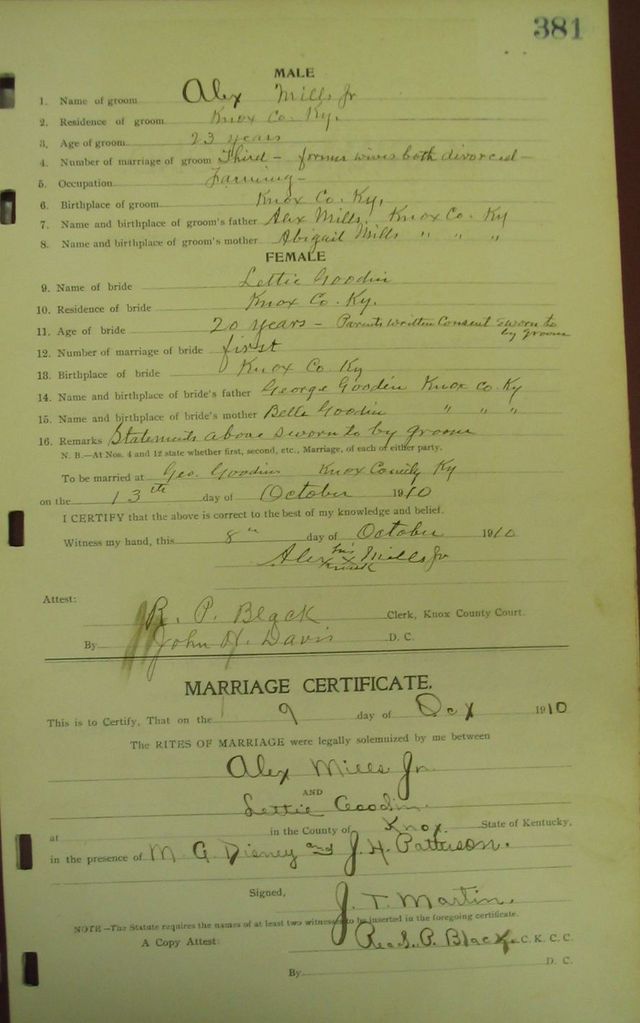 381
MALE
1. Name of groom Alex Mills Jr
2. Residence of groom Knox Co. Ky.
3. Age of groom 23 years
4. Number of marriage of groom Third - former wives both divorced -
5. Occupation Farming -
6. Birthplace of groom Knox Co. Ky.
7. Name and birthplace of groom's father Alex Mills Knox Co. Ky
8. Name and birthplace of groom's mother Abigail Mills " " "
FEMALE
9. Name of bride Lettie Goodin
10. Residence of bride Knox Co. Ky.
11. Age of bride 20 years - Parents written consent sworn to by groom
12. Number of marriage of bride first
13. Birthplace of bride Knox Co. Ky
14. Name and birthplace of bride's father George Goodin Knox Co. Ky
15. Name and birthplace of bride's mother Belle Goodin " " "
16. Remarks Statements above sworn to by groom
N. B.—At Nos. 4 and 12 state whether first, second, etc., Marriage, of each or either party.
To be married at Geo. Goodins Knox County Ky
on the 13th day of October 1910
I CERTIFY that the above is correct to the best of my knowledge and belief.
Witness my hand, this 8th day of October 1910
Alex his x mark Mills Jr
Attest:
R. P. Black Clerk, Knox County Court.
By John H. Davis D. C.
MARRIAGE CERTIFICATE.
This is to Certify, That on the 9 day of 1910
The RITES OF MARRIAGE were legally solemnized by me between
Alex Mills Jr.
AND
Lettie Goodin.
at in the County of Knox. State of Kentucky,
in the presence of M. G. Disney and J. H. Patterson.
Signed, J. T. Martin.
NOTE—The Statute requires the names of at least two witnesses to be inserted in the foregoing certificate.
A Copy Attest: P. Black C. K. C. C.
By D. C.